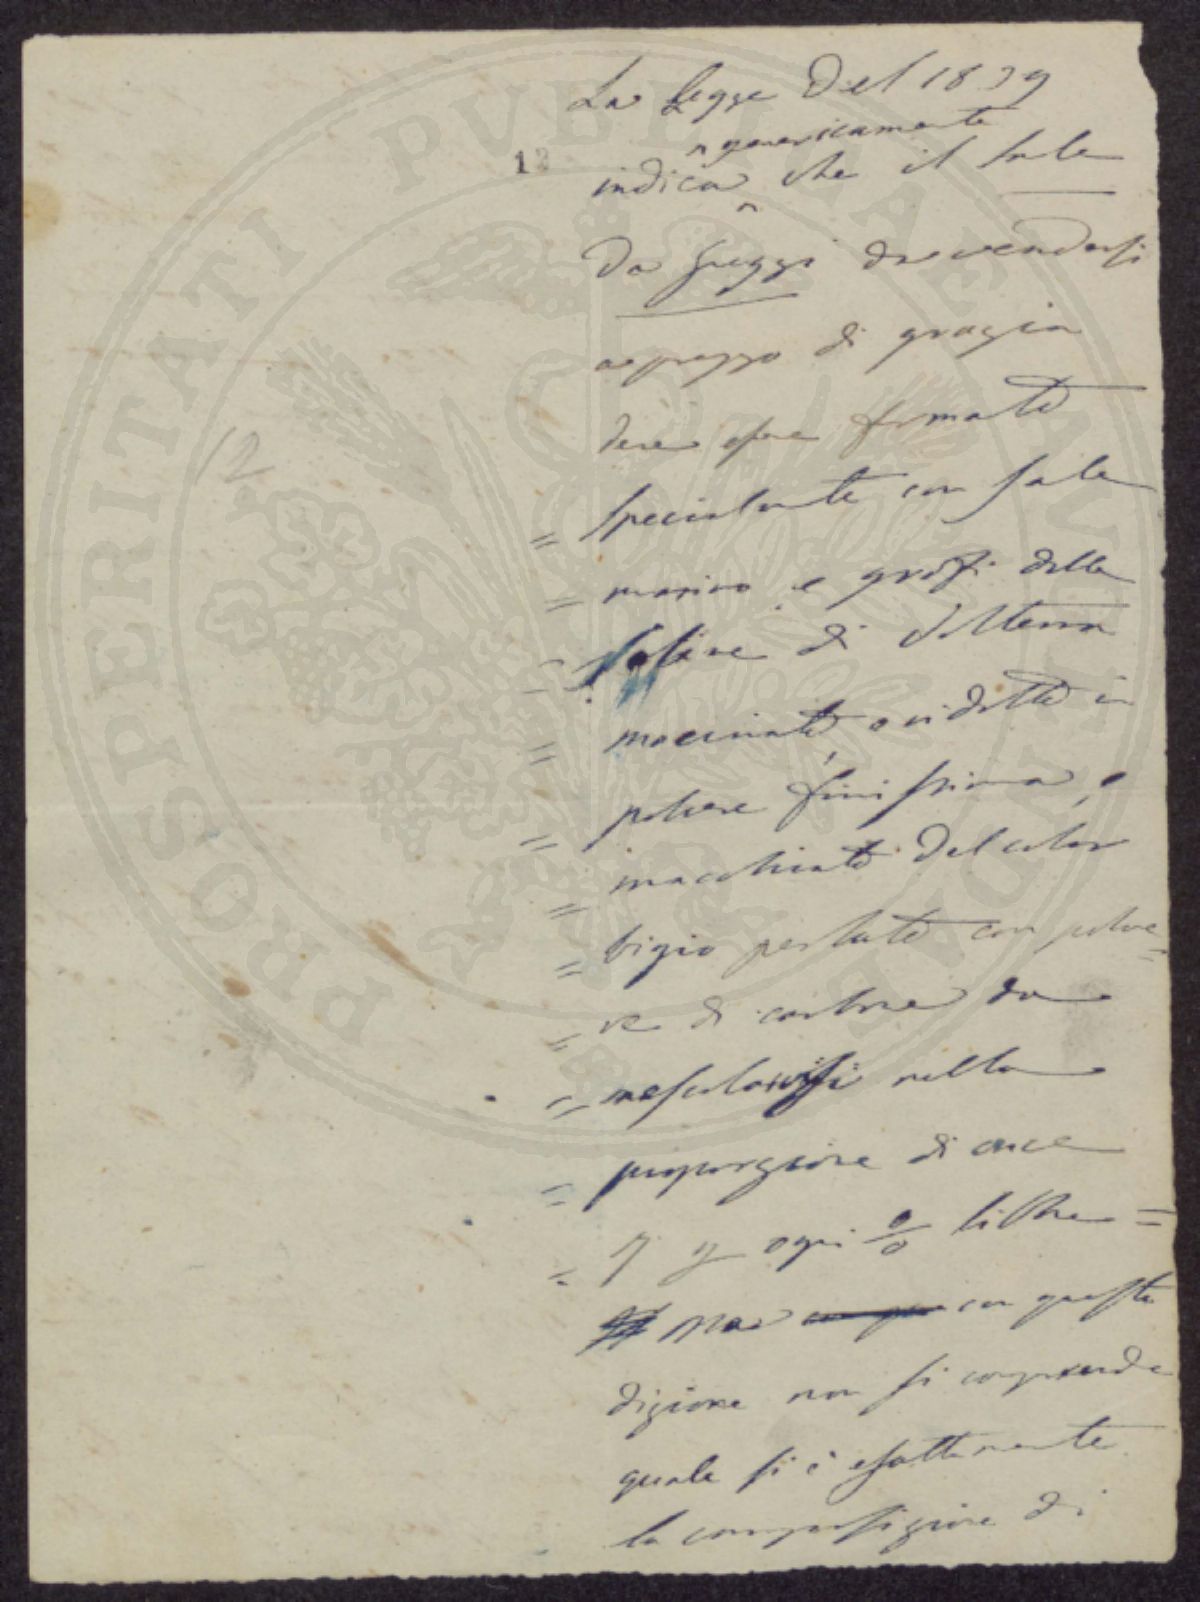 La Legge del 1839
genericamente
12
indica che il sale
da greggi da vendersi
a prezzo di grazia
deve esser formato
= specialmente con sale
= marino e grossi delle
= saline di Volterra
= macinato, e ridotto in
= polvere finissima, e
= macchiato del color
= bigio perlato con polve=
= re di carbone da
= mescolarsi nella
= proporzione di once
= per ogni % libbre =
Ma con questa
dizione non si comprende
quale si è esattamente
la composizione di
12
PROSPERITATI PVBLICAE